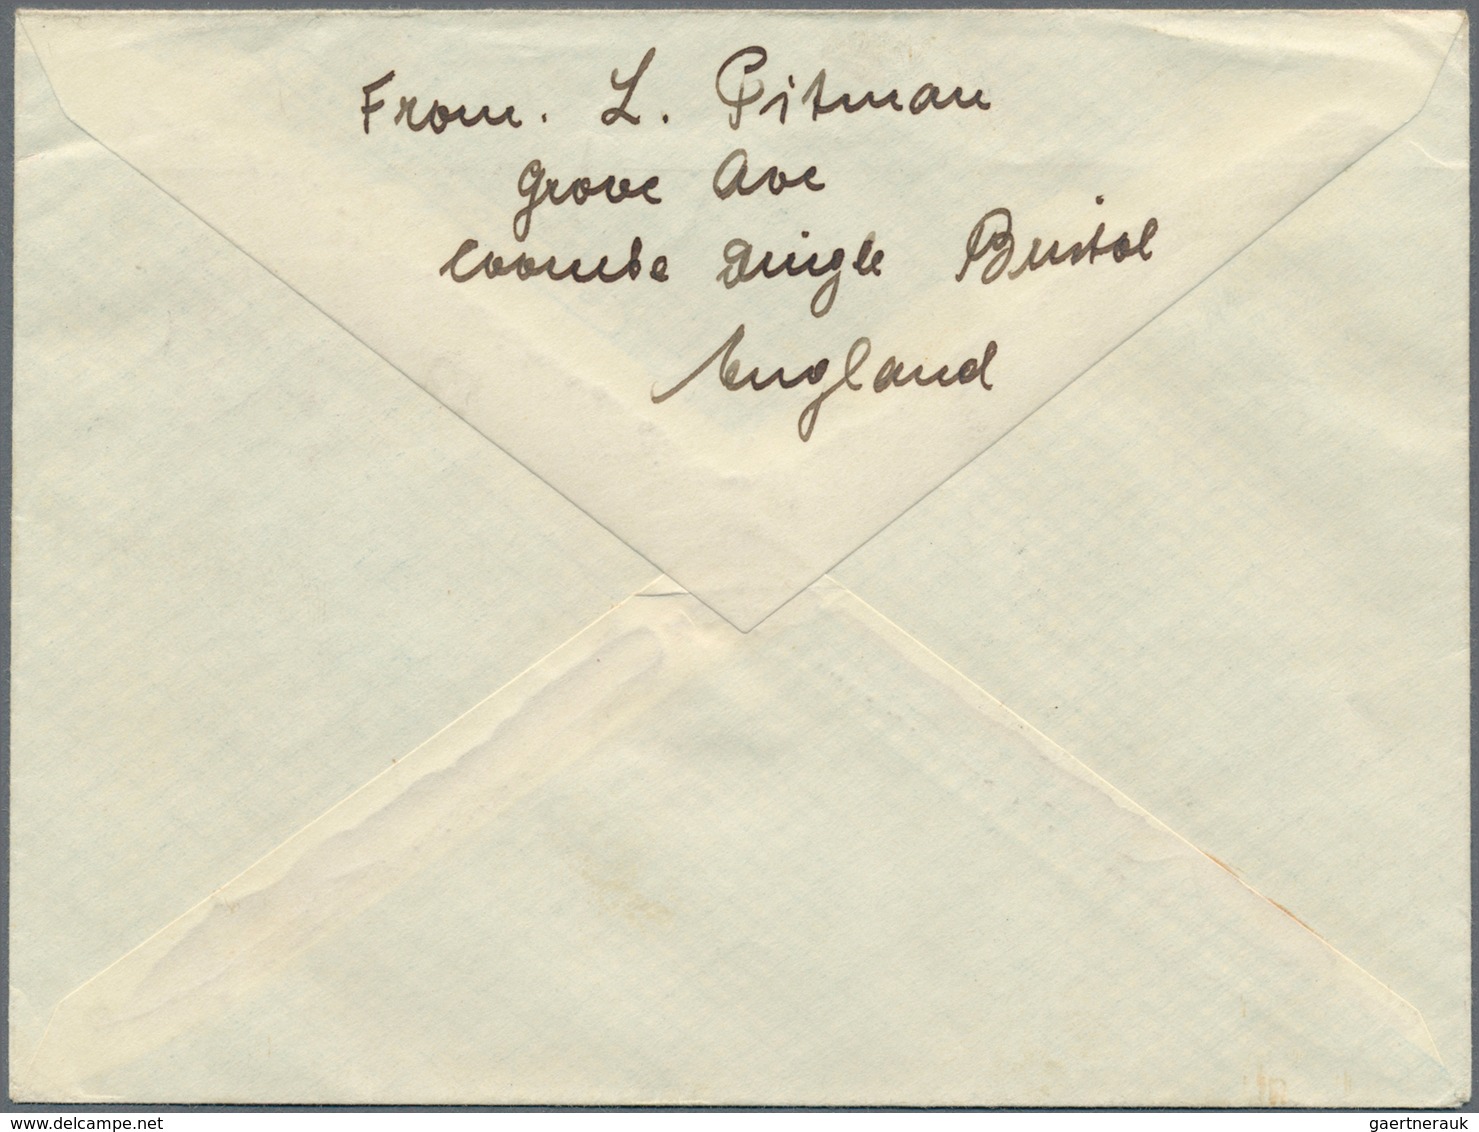 From. L. Pitman
Grove Ave
Coombe Dingle Bristol
England
www.delcampe.net
gaertnerauk